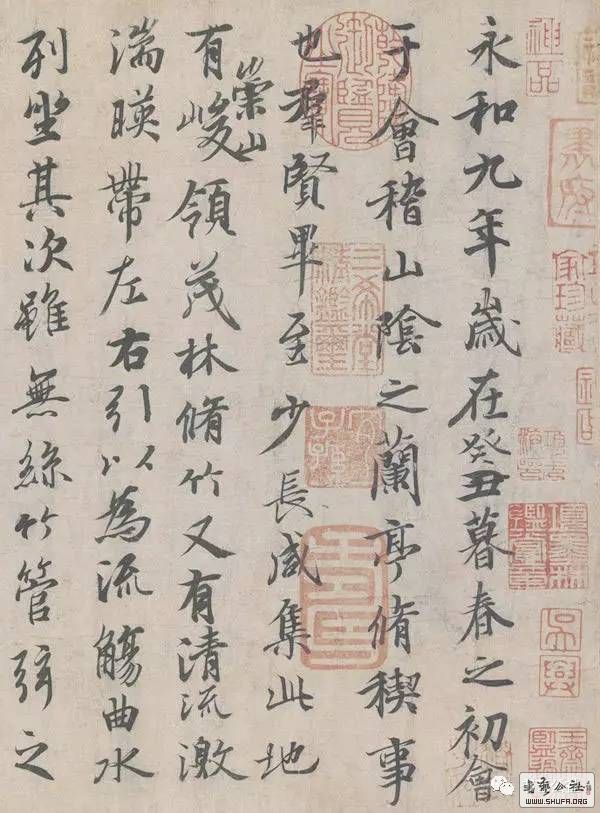 永和九年歲在癸丑暮春之初會
于會稽山陰之蘭亭脩稧事
也羣賢畢至少長咸集此地
有崇山峻領茂林脩竹又有清流激
湍暎帶左右引以為流觴曲水
列坐其次雖無絲竹管弦之
神品
書藝公社
WWW.SHUFA.ORG